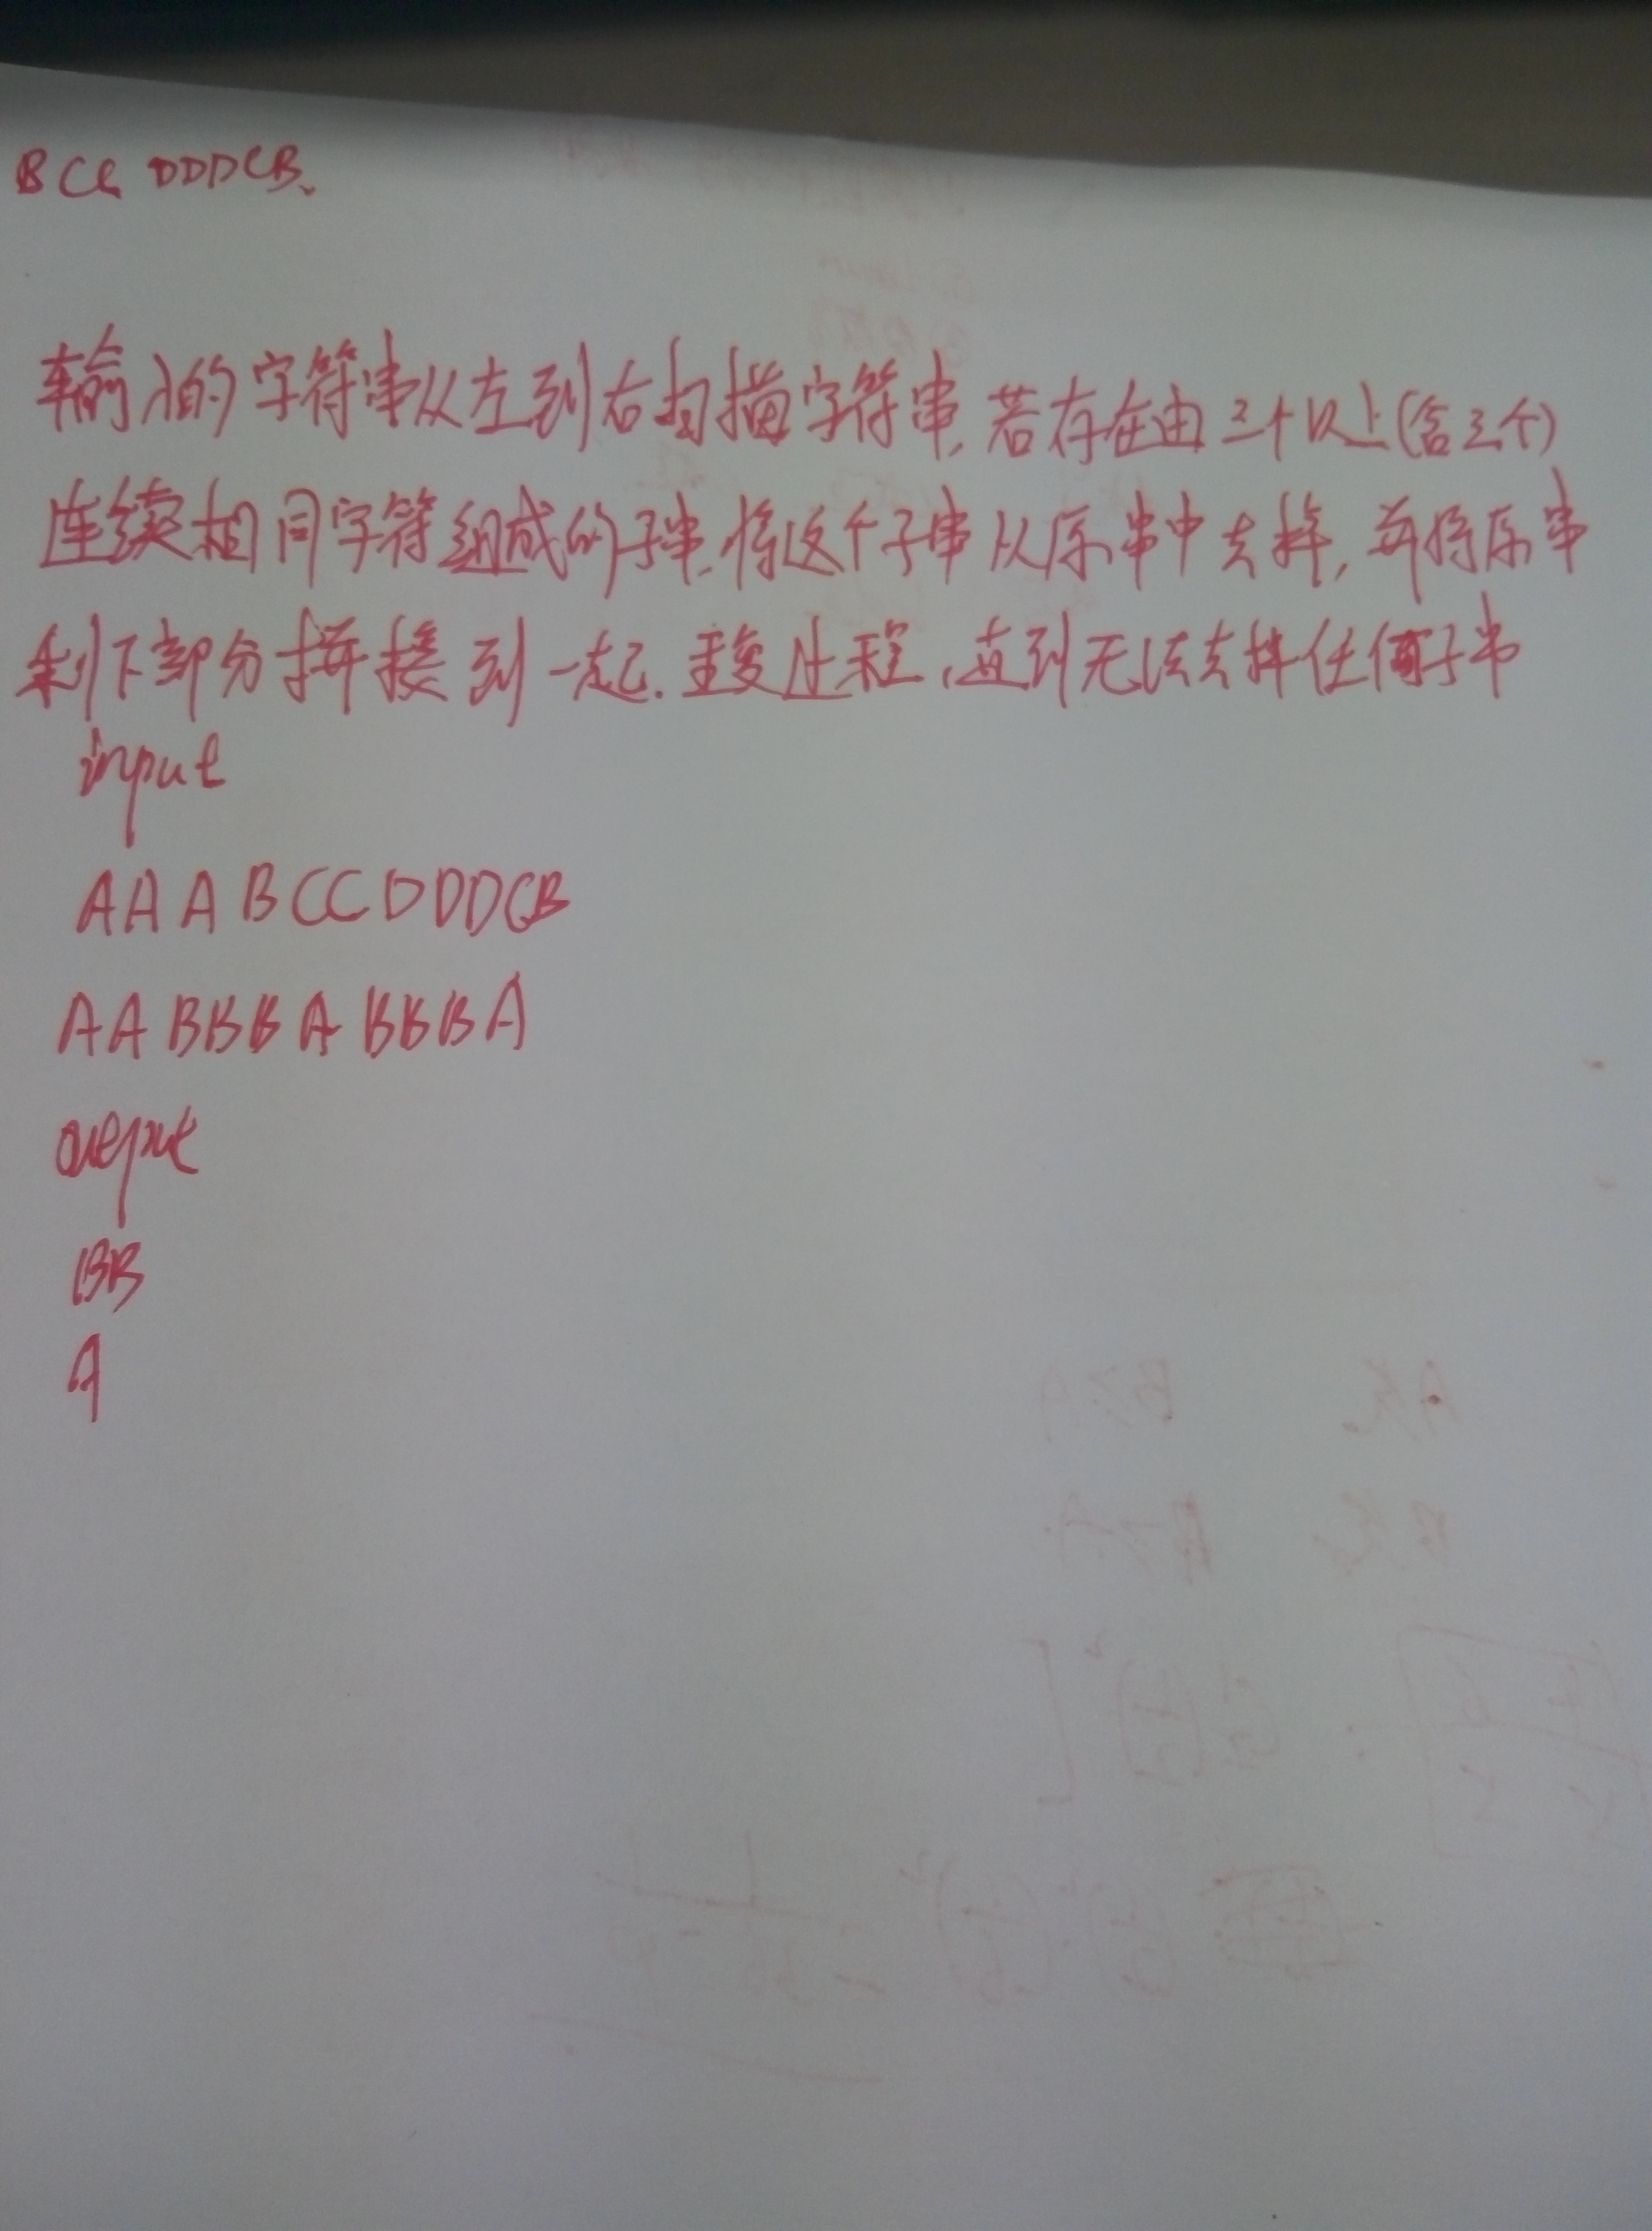 BCC DDDCB
输入的字符串从左到右扫描字符串,若存在由三个以上(含三个)
连续相同字符组成的子串,将这个子串从原串中去掉,并将原串
剩下部分拼接到一起.重复过程,直到无法去掉任何子串
input
AAABCCDDDCB
AABBBABBBA
output
BB
A